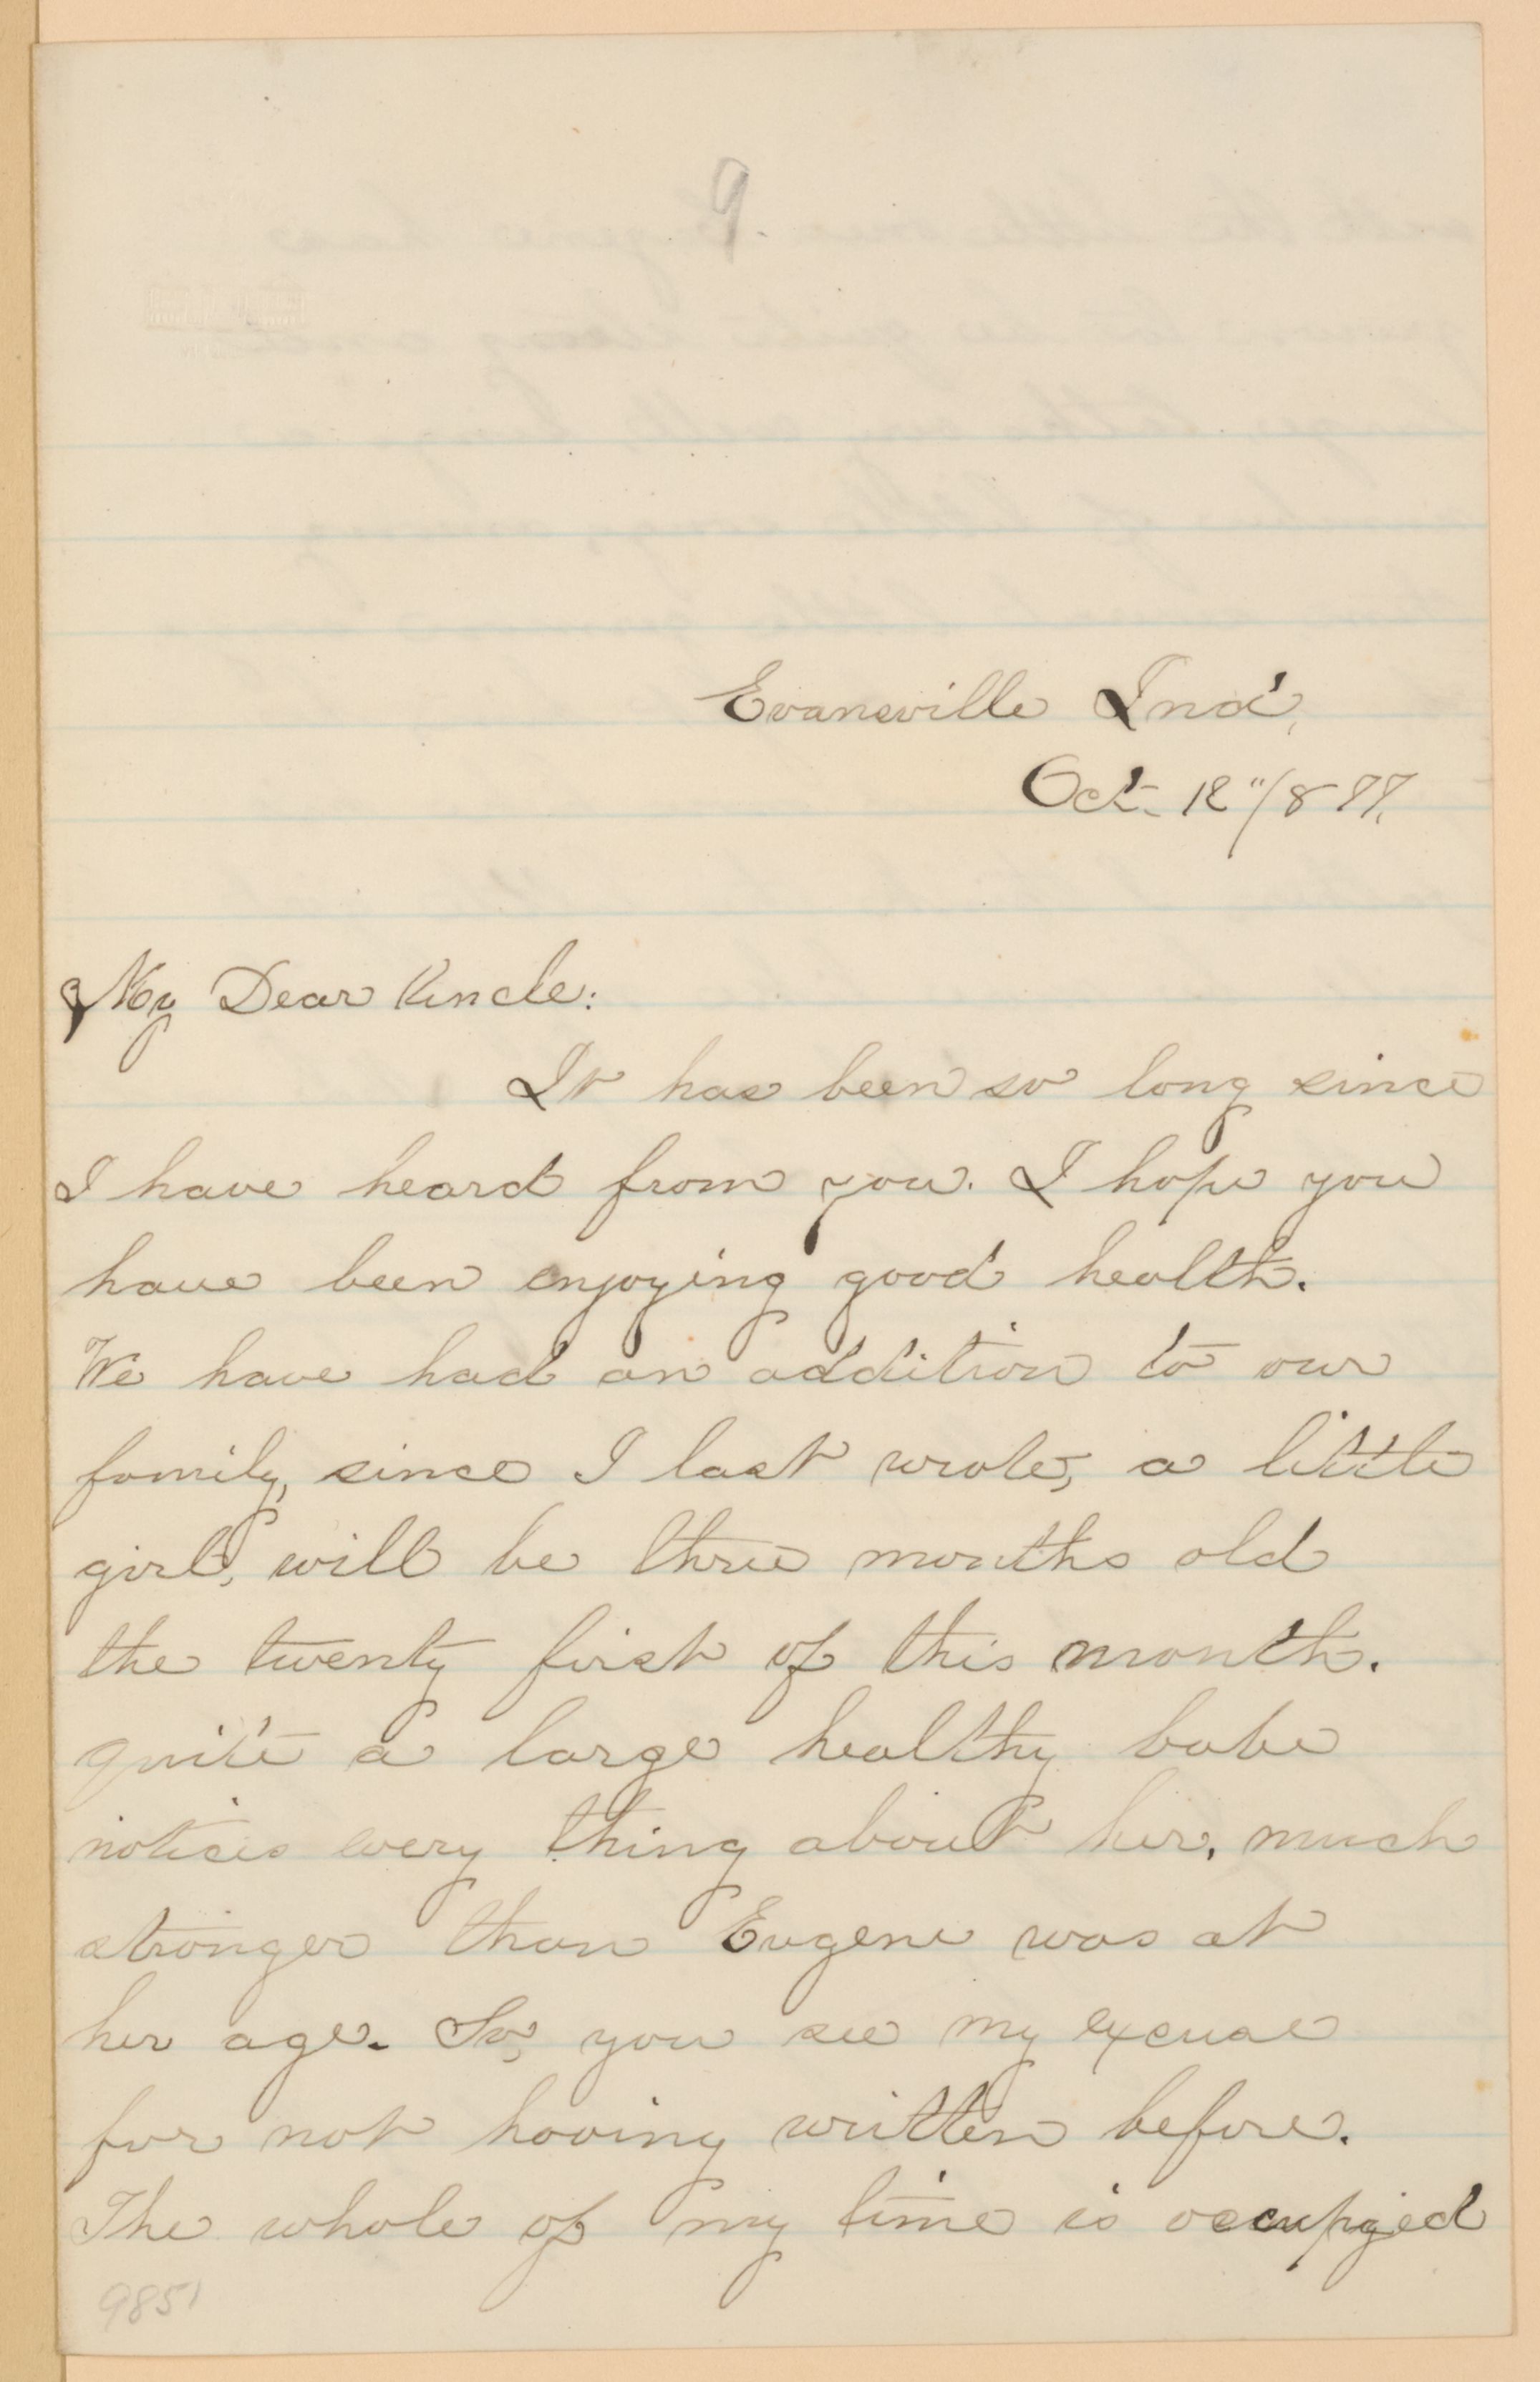 9.
Evansville Ind,
Oct. 12"/877.
My Dear Uncle:
It has been so long since
I have heard from you. I hope you
have been enjoying good health.
We have had an addition to our
family, since I last wrote, a little
girl, will be three months old
the twenty first of this month.
quite a large healthy babe
notices every thing about her, much
stronger than Eugene was at
her age. So, you see my excuse
for not having written before.
The whole of my time is occupyied
9851